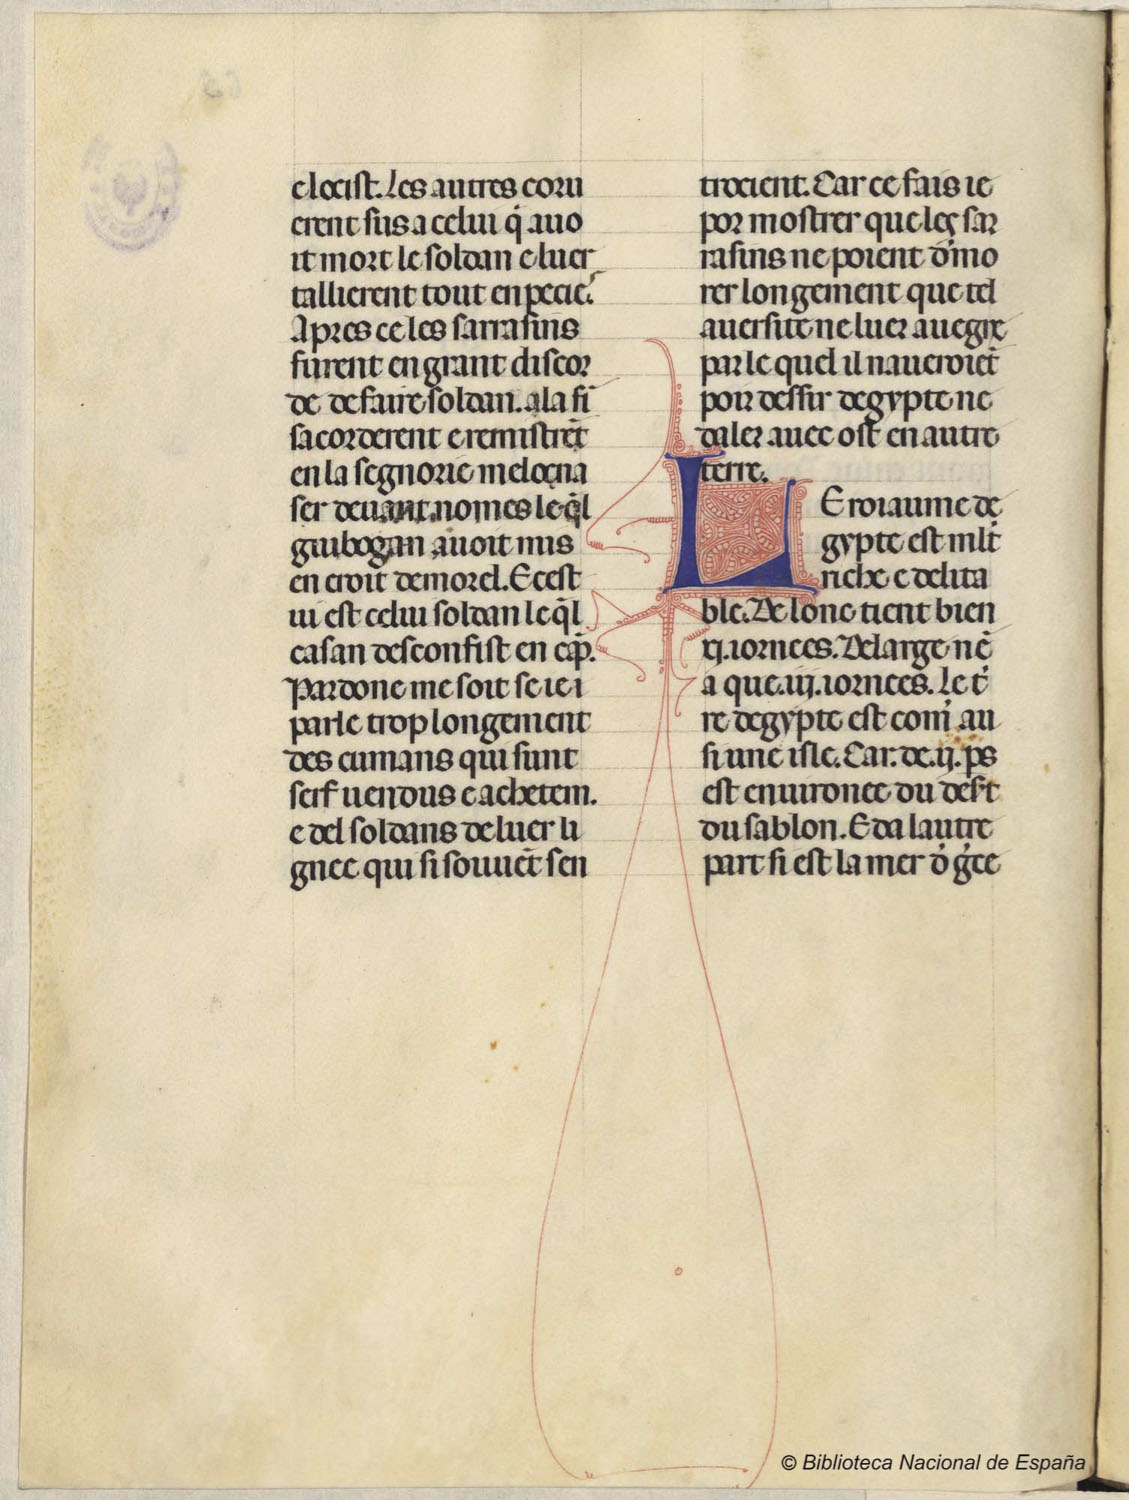 e locist. Les autres coru
erent sus a celui q̇ auo
it mort le soldan e luer
tallierent tout en pecie.
Apres ce les sarrasins
furent en grant discor
de de faire soldan. a la fi
sacorderent e remistrēt
en la segnorie melocna
ser deuant nomes le q̄l
guibogan auoit mis
en croit de morel. E cest
ui est celui soldan le q̄l
casan desconfist en
Pardone me soit se ie i
parle trop longement
des cumans qui sunt
serf uendus e achetem.
e del soldans de luer li
gnee qui si souuēt sen
trocient. Car ce fais ie
por mostrer que les sar
rasins ne poient d'mo
rer longement que tel
auersite ne luer auegne
par le quel il naueroiēt
poir dessir degypte ne
daler auec ost en autre
terre.
LE roiaume de
gypte est mlt
riche e delita
ble. De lonc tient bien
xj. iornees. De large nē
a que .iij. iornees. Le t'
re degypte est com au
si une isle. Car. de .ij. ps
est enuironee du desrt
du sablon. E da lautre
part si est la mer d' g'ce
© Biblioteca Nacional de España